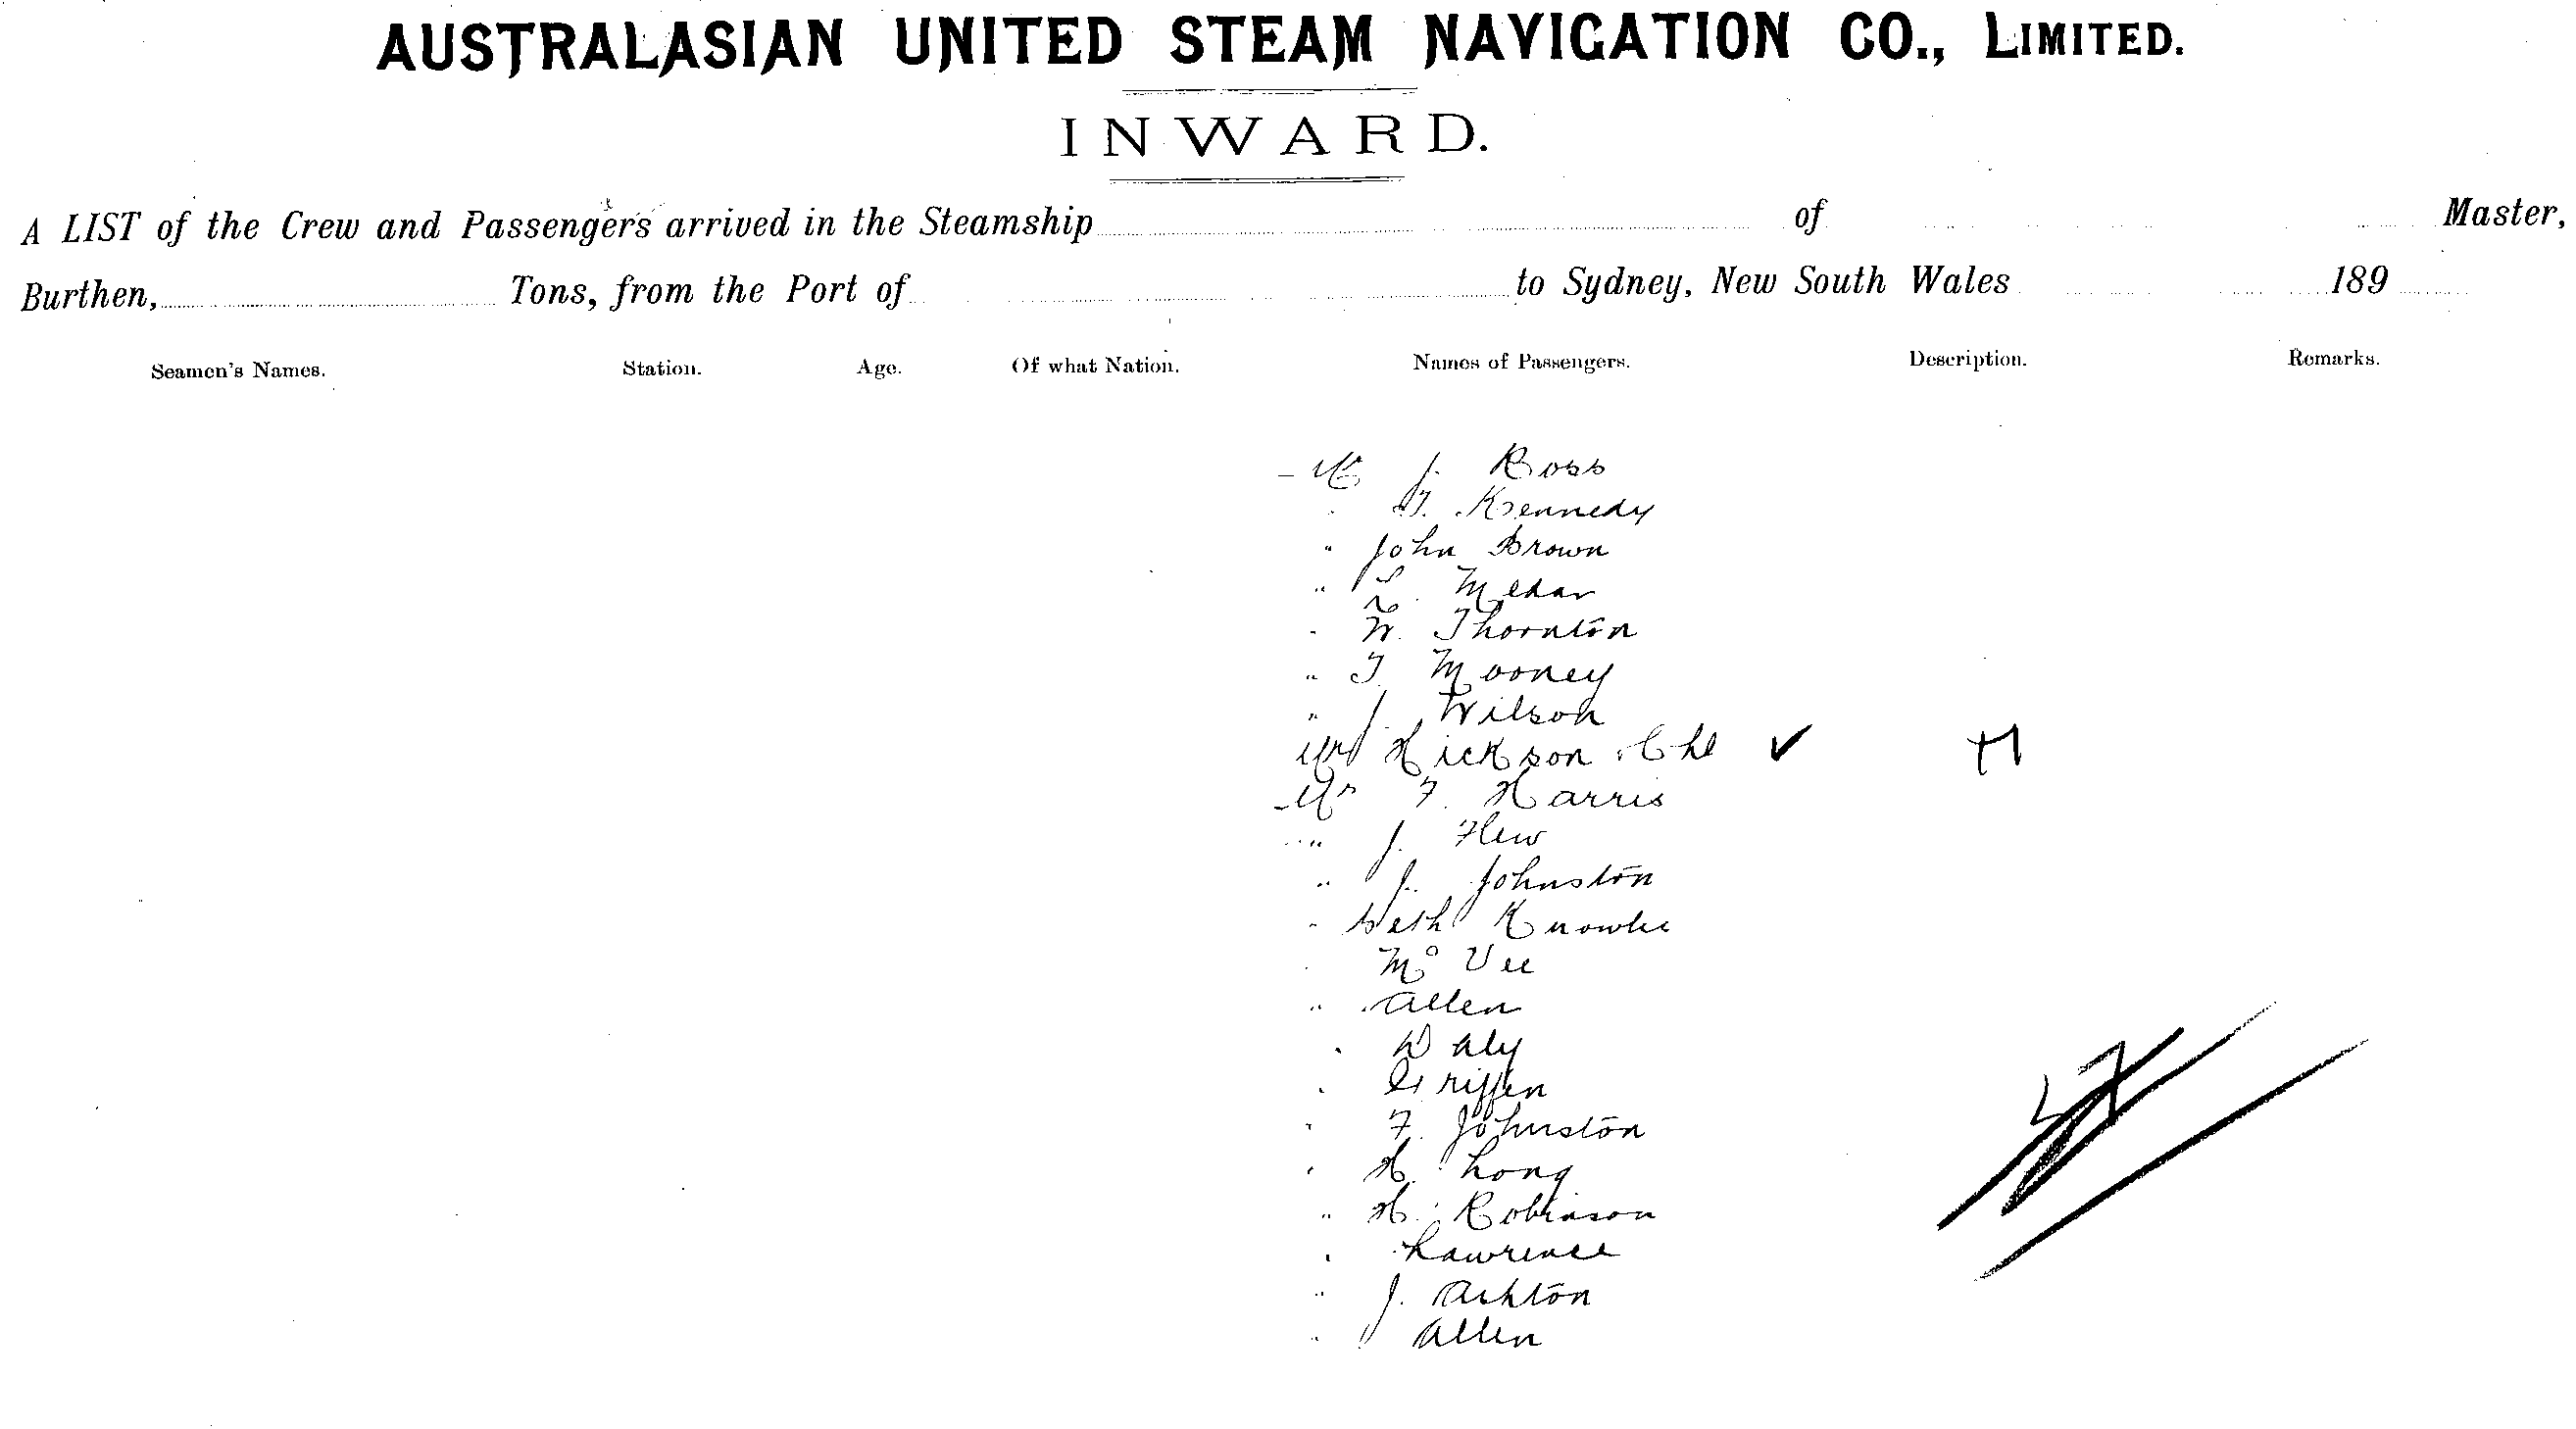 AUSTRALASIAN UNITED STEAM NAVIGATION CO., LIMITED.
INWARD.
A LIST of the Crew and Passengers arrived in the Steamship of Master,
Burthen, Tons, from the Port of to Sydney, New South Wales 189
Seamen's Names. Station. Age. Of what Nation. Names of Passengers. Description. Remarks.
Mr J. Ross
" Kennedy
" John Brown
" Medar
" W. Thornton
" T Mooney
" J. Wilson
Mrs Hickson & Chd ✓
Mr F. Harris
" J. Flew
" J. Johnston
" Seth Knowles
Mc Vee
" Allen
" Daly
" Griffen
" F. Johnston
" H. Long
" H. Robinson
" Lawrence
" J. Ashton
" Allen